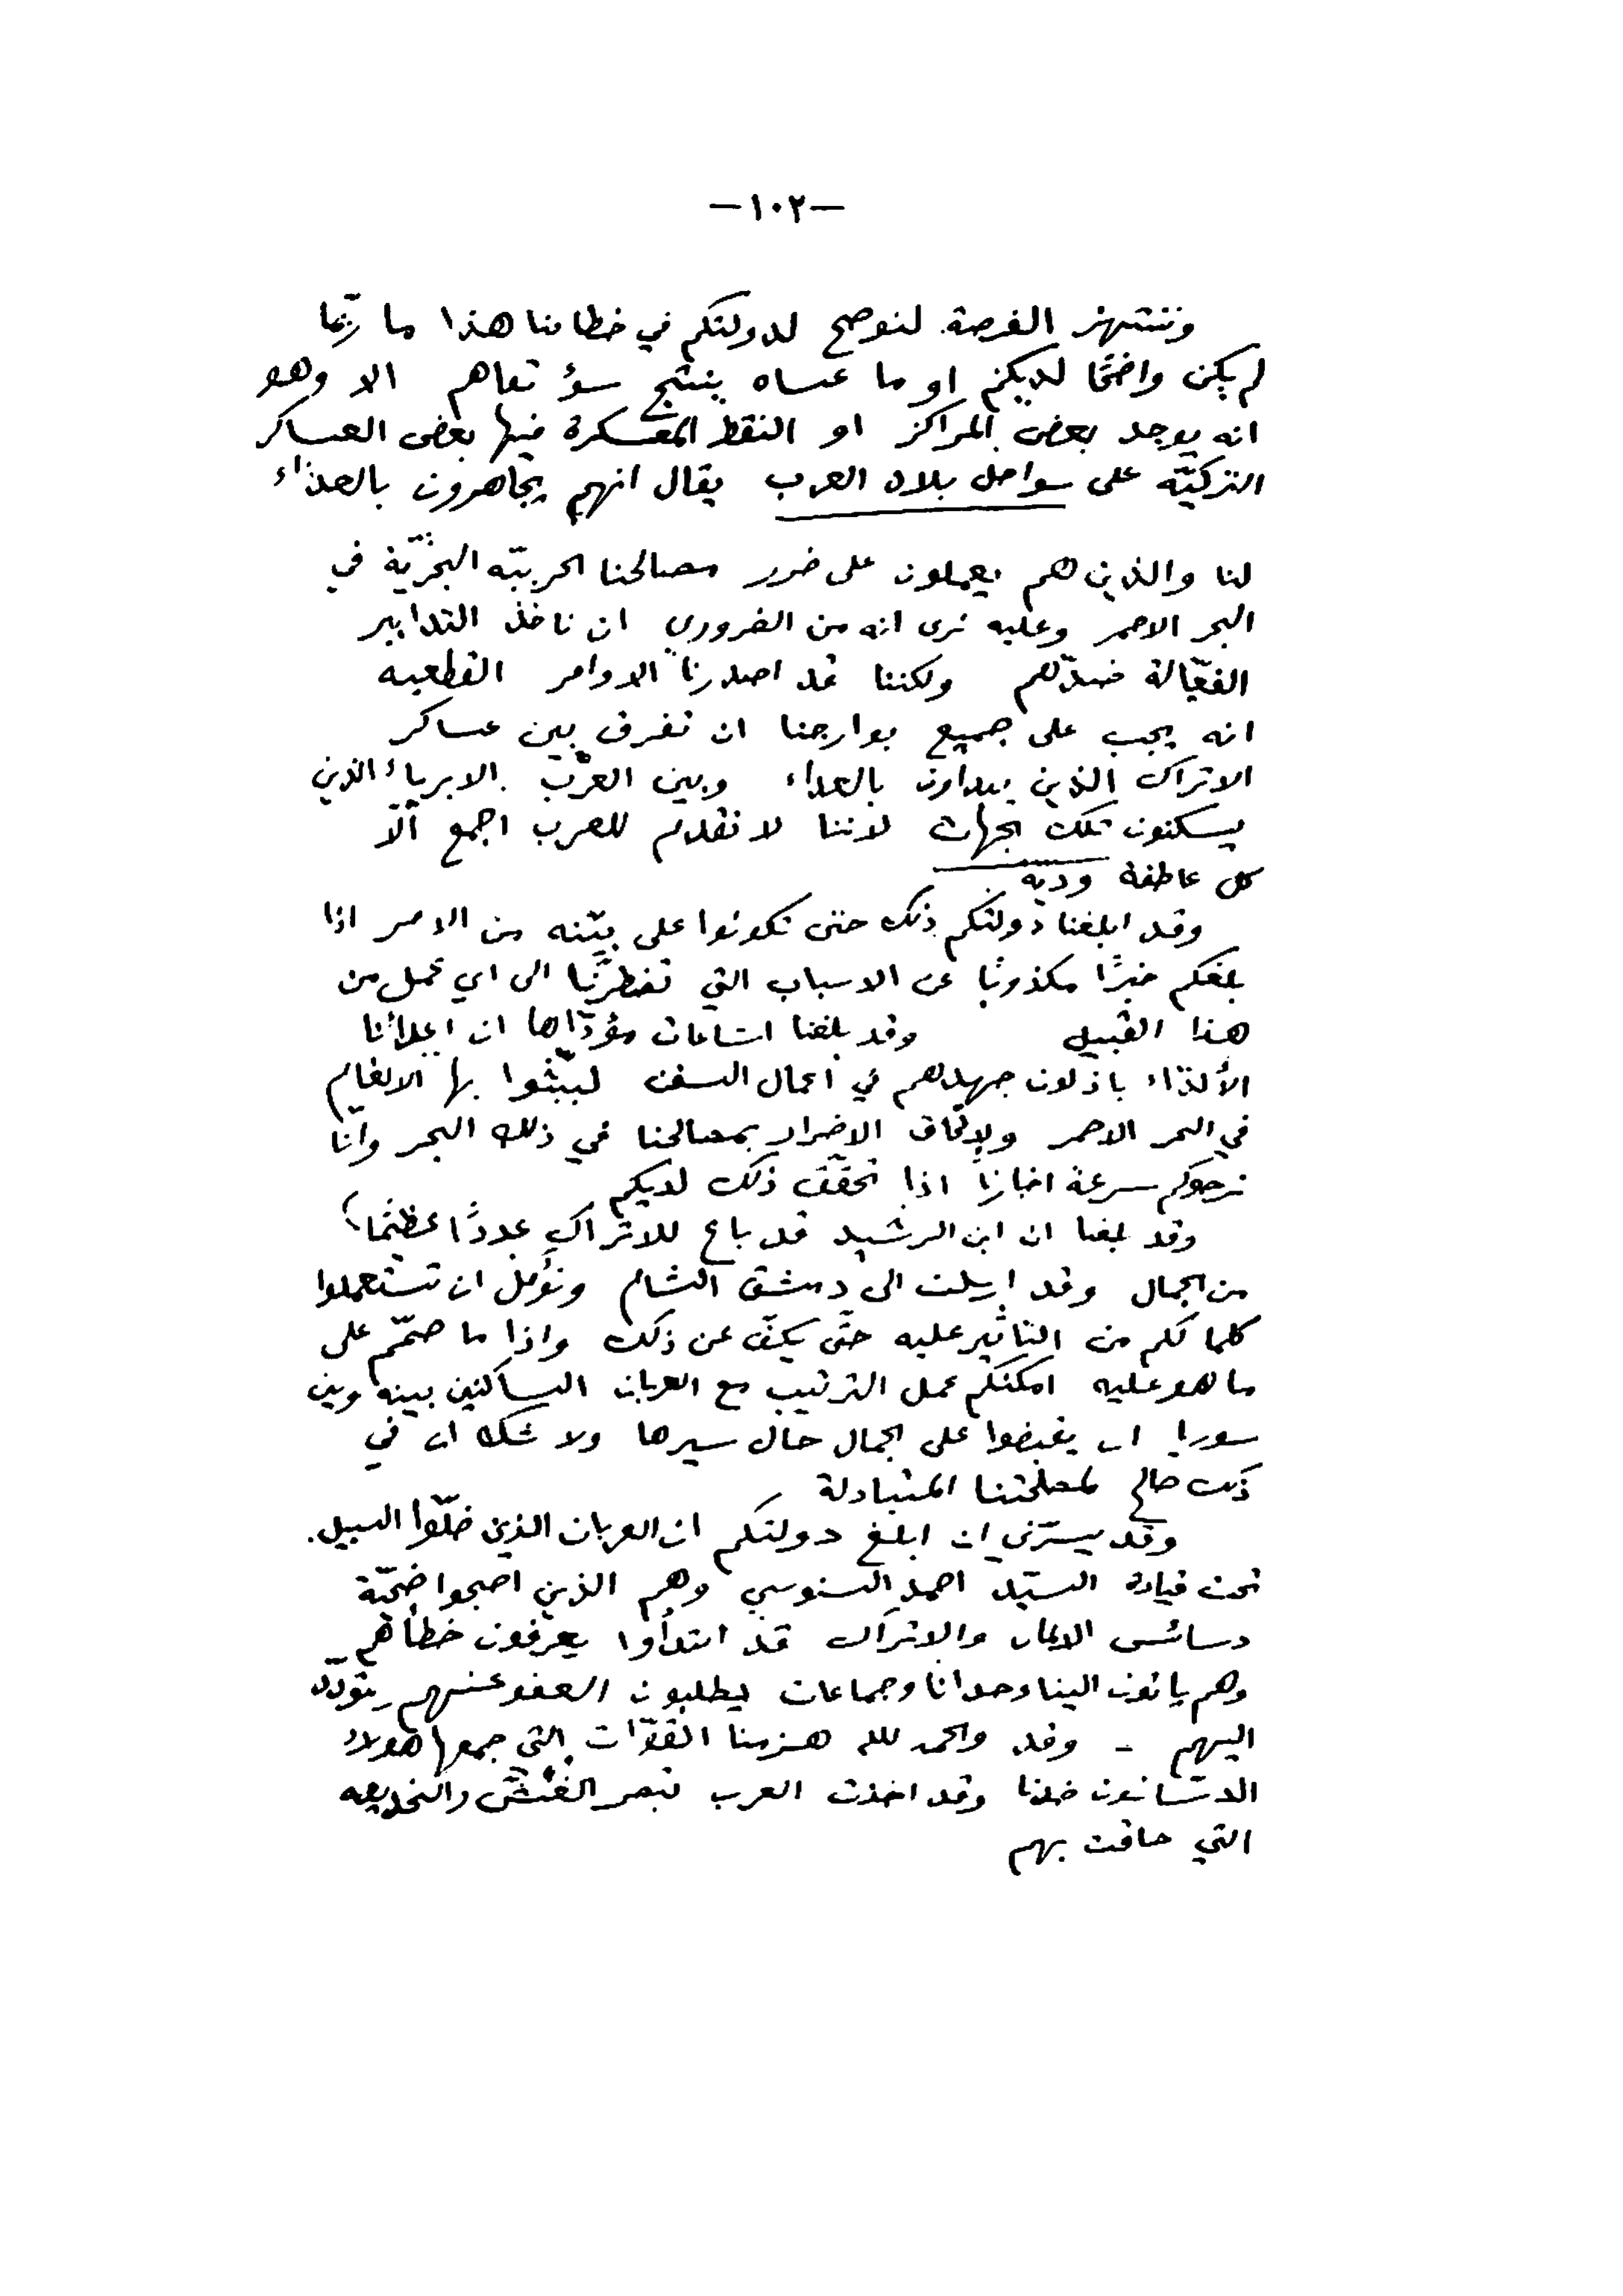 —١٠٢—
وننتهز الفرصة لنوضح لدولتكم في خطابنا هذا ما ربّما
لم يكن واضحًا لديكم او ما عساه ينتج سؤ تفاهم الا وهو
انه يوجد بعض المراكز او النقط المعسكرة فيها بعض العساكر
التركيّه على سواحل بلاد العرب يقال انهم يجاهرون بالعداء
لنا والذين هم يعملون على ضرر مصالحنا الحربيّه البحريّة في
البحر الاحمر وعليه نرى انه من الضروري ان ناخذ التدابير
الفعّالة ضدّهم ولكننا قد اصدرنا الاوامر القطعيه
انه يجب على جميع بوارجنا ان تفرق بين عساكر
الاتراك الذين يبدأون بالعداء وبين العرب الابرياء الذين
يسكنون تلك الجهات لاننا لا نقدم للعرب اجمع الّا
كل عاطفة وديّه
وقد ابلغنا دولتكم ذلك حتى تكونوا على بيّنه من الامر اذا
بلغكم خبرًا مكذوبًا عن الاسباب التي تضطرّنا الى اي عمل من
هذا القبيل وقد بلغنا اشاعات مؤدّاها ان اعدائنا
الألدّاء باذلون جهدهم في اعمال السفن ليبثّوا بها الالغام
في البحر الاحمر ولإلحاق الاضرار بمصالحنا في ذلك البحر وانّا
نرجوكم سرعة اخبارنا اذا تحقّق ذلك لديكم
وقد بلغنا ان ابن الرشيد قد باع للاتراك عددًا عظيمًا
من الجمال وقد ارسلت الى دمشق الشام ونؤمل ان تستعملوا
كلما لكم من التاثير عليه حتّى يكفّ عن ذلك واذا ما صمّم على
ما هو عليه امكنكم عمل الترتيب مع العربان الساكنين بينه وبين
سوريا ان يقبضوا على الجمال حال سيرها ولا شك ان في
ذلك صالح لمصلحتنا المتبادلة
وقد يسرّني ان ابلغ دولتكم ان العربان الذين ضلّوا السبيل.
تحت قيادة السيّد احمد السنوسي وهم الذين اصبحوا ضحيّة
دسائس الالمان والاتراك قد ابتدأوا يعرفون خطأهم
وهم ياتون الينا وحدانا وجماعات يطلبون العفو عنهم والتودّد
اليهم - وقد والحمد لله هزمنا القوّات التي جمعها هولاء
الدسّاسون ضدنا وقد اخذت العرب تبصر الغشّ والخديعه
التي حاقت بهم